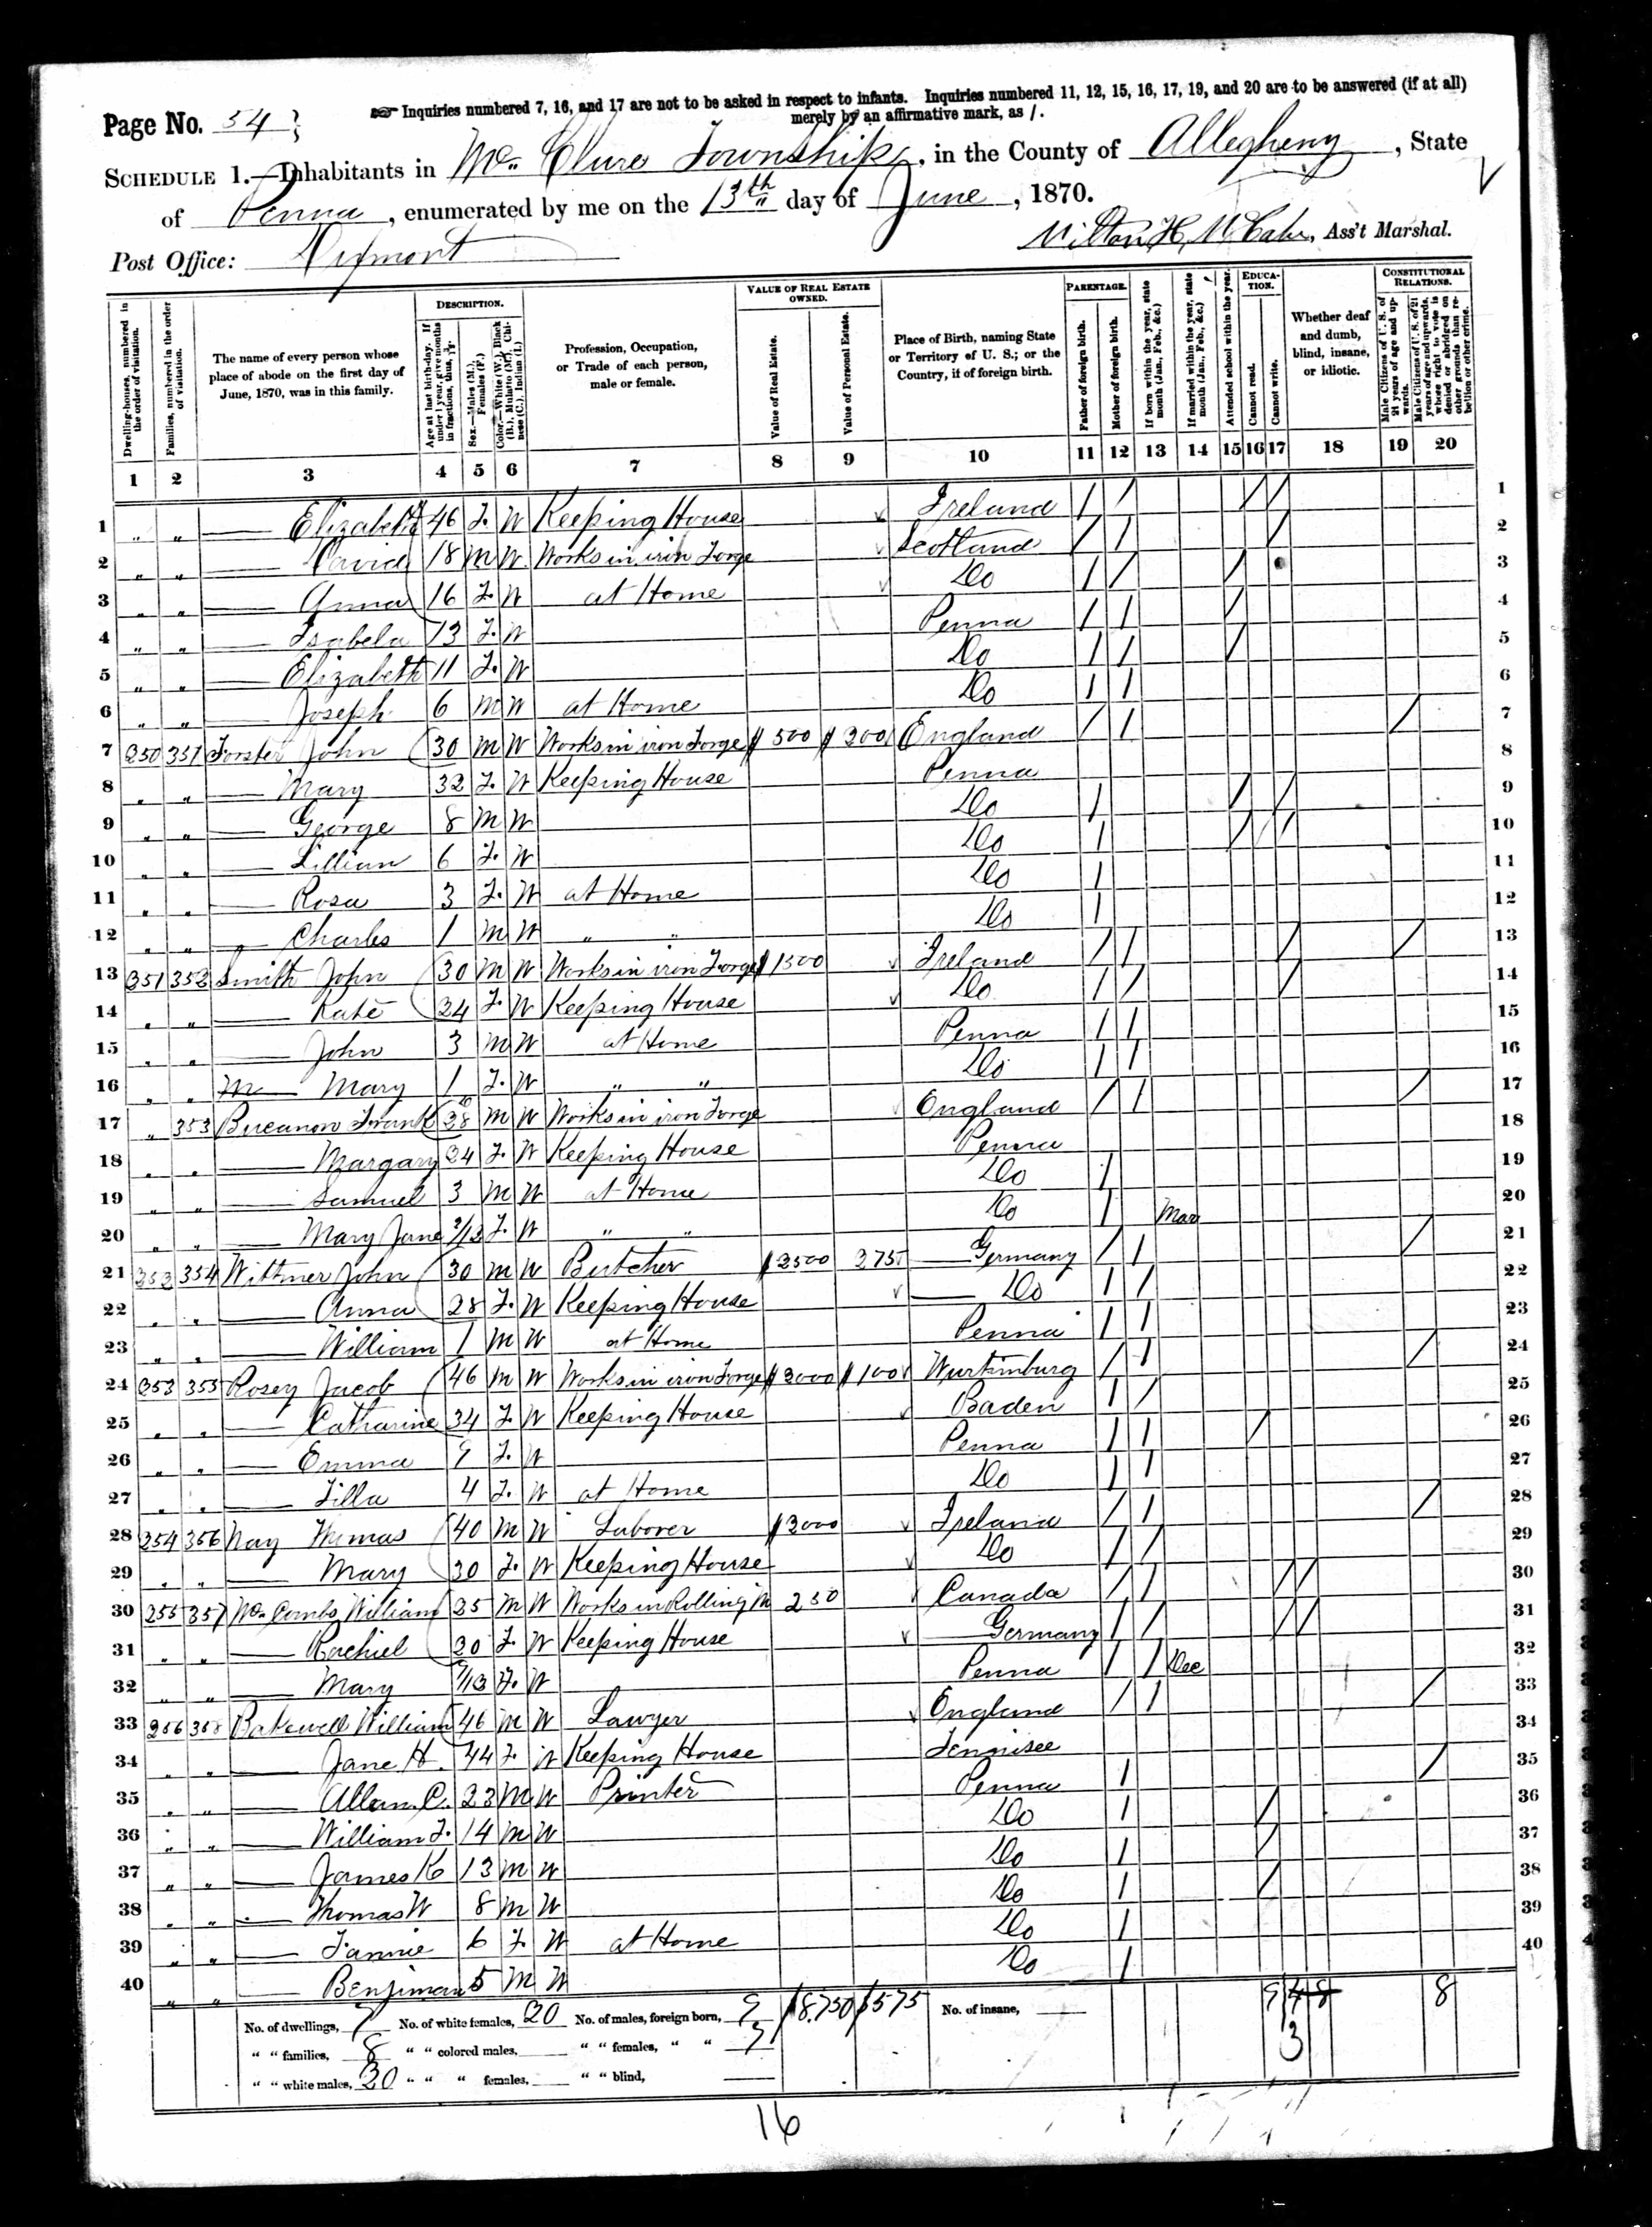 Page No. 54
☞ Inquiries numbered 7, 16, and 17 are not to be asked in respect to infants. Inquiries numbered 11, 12, 15, 16, 17, 19, and 20 are to be answered (if at all)
merely by an affirmative mark, as /.
SCHEDULE 1.—Inhabitants in Mc. Clure Township, in the County of Allegheny, State
of Penna, enumerated by me on the 13th day of June, 1870.
Post Office: Milton H. McCabe, Ass't Marshal.
Dwelling-houses, numbered in the order of visitation.
Families, numbered in the order of visitation.
The name of every person whose place of abode on the first day of June, 1870, was in this family.
DESCRIPTION.
Age at last birth-day. If under 1 year, give months in fractions, thus,
Sex.—Males (M.), Females (F.)
Color.—White (W.), Black (B.), Mulatto (M.), Chinese (C.), Indian (I.)
Profession, Occupation, or Trade of each person, male or female.
VALUE OF REAL ESTATE OWNED.
Value of Real Estate.
Value of Personal Estate.
Place of Birth, naming State or Territory of U. S.; or the Country, if of foreign birth.
PARENTAGE.
Father of foreign birth.
Mother of foreign birth.
If born within the year, state month (Jan., Feb., &c.)
If married within the year, state month (Jan., Feb., &c.)
Attended school within the year.
EDUCATION.
Cannot read.
Cannot write.
Whether deaf and dumb, blind, insane, or idiotic.
CONSTITUTIONAL RELATIONS.
Male Citizens of U. S. of 21 years of age and upwards.
Male Citizens of U. S. of 21 years of age and upwards, whose right to vote is denied or abridged on other grounds than rebellion or other crime.
1 2 3 4 5 6 7 8 9 10 11 12 13 14 15 16 17 18 19 20
1 " " — Elizabeth 46 F. W Keeping House Ireland / / / / 1
2 " " — David 18 M W Works in iron Forge Scotland / / / 2
3 " " — Anna 16 F. W at Home Do / / / 3
4 " " — Isabela 13 F. W Penna / / / 4
5 " " — Elizabeth 11 F. W Do / / / 5
6 " " — Joseph 6 M W at Home Do / / 6
7 250 351 Forster John 30 M W Works in iron Forge $500 $300 England / / / 7
8 " " — Mary 32 F. W Keeping House Penna 8
9 " " — George 8 M W Do / / / 9
10 " " — Lillian 6 F. W Do / / / / 10
11 " " — Rosa 3 F. W at Home Do / 11
12 " " " Charles 1 M W " " Do / 12
13 351 352 Smith John 30 M W Works in iron Forge $1500 Ireland / / / / 13
14 " " — Kate 24 F. W Keeping House Do / / / 14
15 " " — John 3 M W at Home Penna / / 15
16 " " Mary 1 F. W " " Do / / 16
17 " 353 Bucanon Frank 38 M W Works in iron Forge England / / / 17
18 " " — Margary 24 F. W Keeping House Penna 18
19 " " — Samuel 3 M W at Home Do / 19
20 " " — Mary Jane 3/12 F. W " " Do / Mar 20
21 352 354 Wittmer John 30 M W Butcher $2500 275 Germany / / / 21
22 " " — Anna 28 F. W Keeping House — Do / / 22
23 " " — William 1 M W at Home Penna / / 23
24 353 355 Rosey Jacob 46 M W Works in iron Forge $2000 $100 Wurtimburg / / / 24
25 " " — Catharine 34 F. W Keeping House Baden / / 25
26 " " — Emma 9 F. W Penna / / / 26
27 " " — Tilla 4 F. W at Home Do / / 27
28 254 356 Nay Thomas 40 M W Laborer $2000 Ireland / / / 28
29 " " — Mary 30 F. W Keeping House Do / / 29
30 255 357 Mc. Combs William 25 M W Works in Rolling M 250 Canada / / / / 30
31 " " — Rachiel 30 F. W Keeping House Germany / / / / 31
32 " " — Mary F. W Penna / / Dec 32
33 256 358 Bakewell William 46 M W Lawyer England / / / 33
34 " " — Jane H. 44 F. W Keeping House Tennisee 34
35 " " — Allan. C. 23 M W Printer Penna / / 35
36 " " — William J. 14 M W Do / / 36
37 " " — James K 13 M W Do / / 37
38 " " — Thomas W 8 M W Do / / 38
39 " " — Fannie 6 F. W at Home Do / 39
40 " " — Benjiman 5 M W Do / 40
No. of dwellings, 7 No. of white females, 20 No. of males, foreign born, 9 $8,750 $575 No. of insane, 9 8
" " families, 8 " " colored males, " " females, " " 7 3
" " white males, 20 " " " females, " " blind,
16